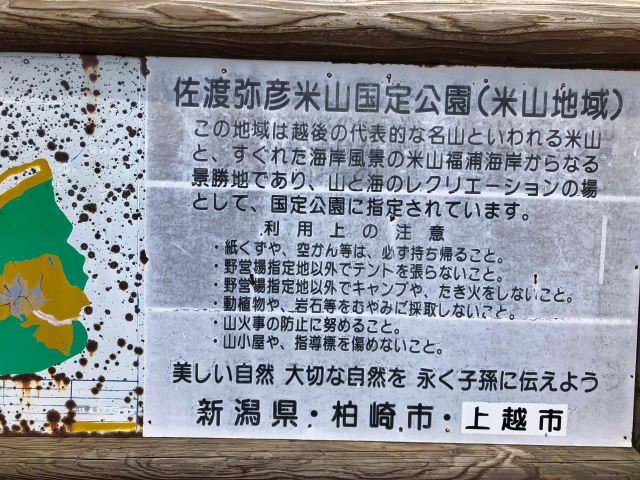 佐渡弥彦米山国定公園(米山地域)
この地域は越後の代表的な名山といわれる米山
と、すぐれた海岸風景の米山福浦海岸からなる
景勝地であり、山と海のレクリエーションの場
として、国定公園に指定されています。
利用上の注意
・紙くずや、空かん等は、必ず持ち帰ること。
・野営場指定地以外でテントを張らないこと。
・野営場指定地以外でキャンプや、たき火をしないこと。
・動植物や、岩石等をむやみに採取しないこと。
・山火事の防止に努めること。
・山小屋や、指導標を傷めないこと。
美しい自然 大切な自然を 永く子孫に伝えよう
新潟県・柏崎市・上越市